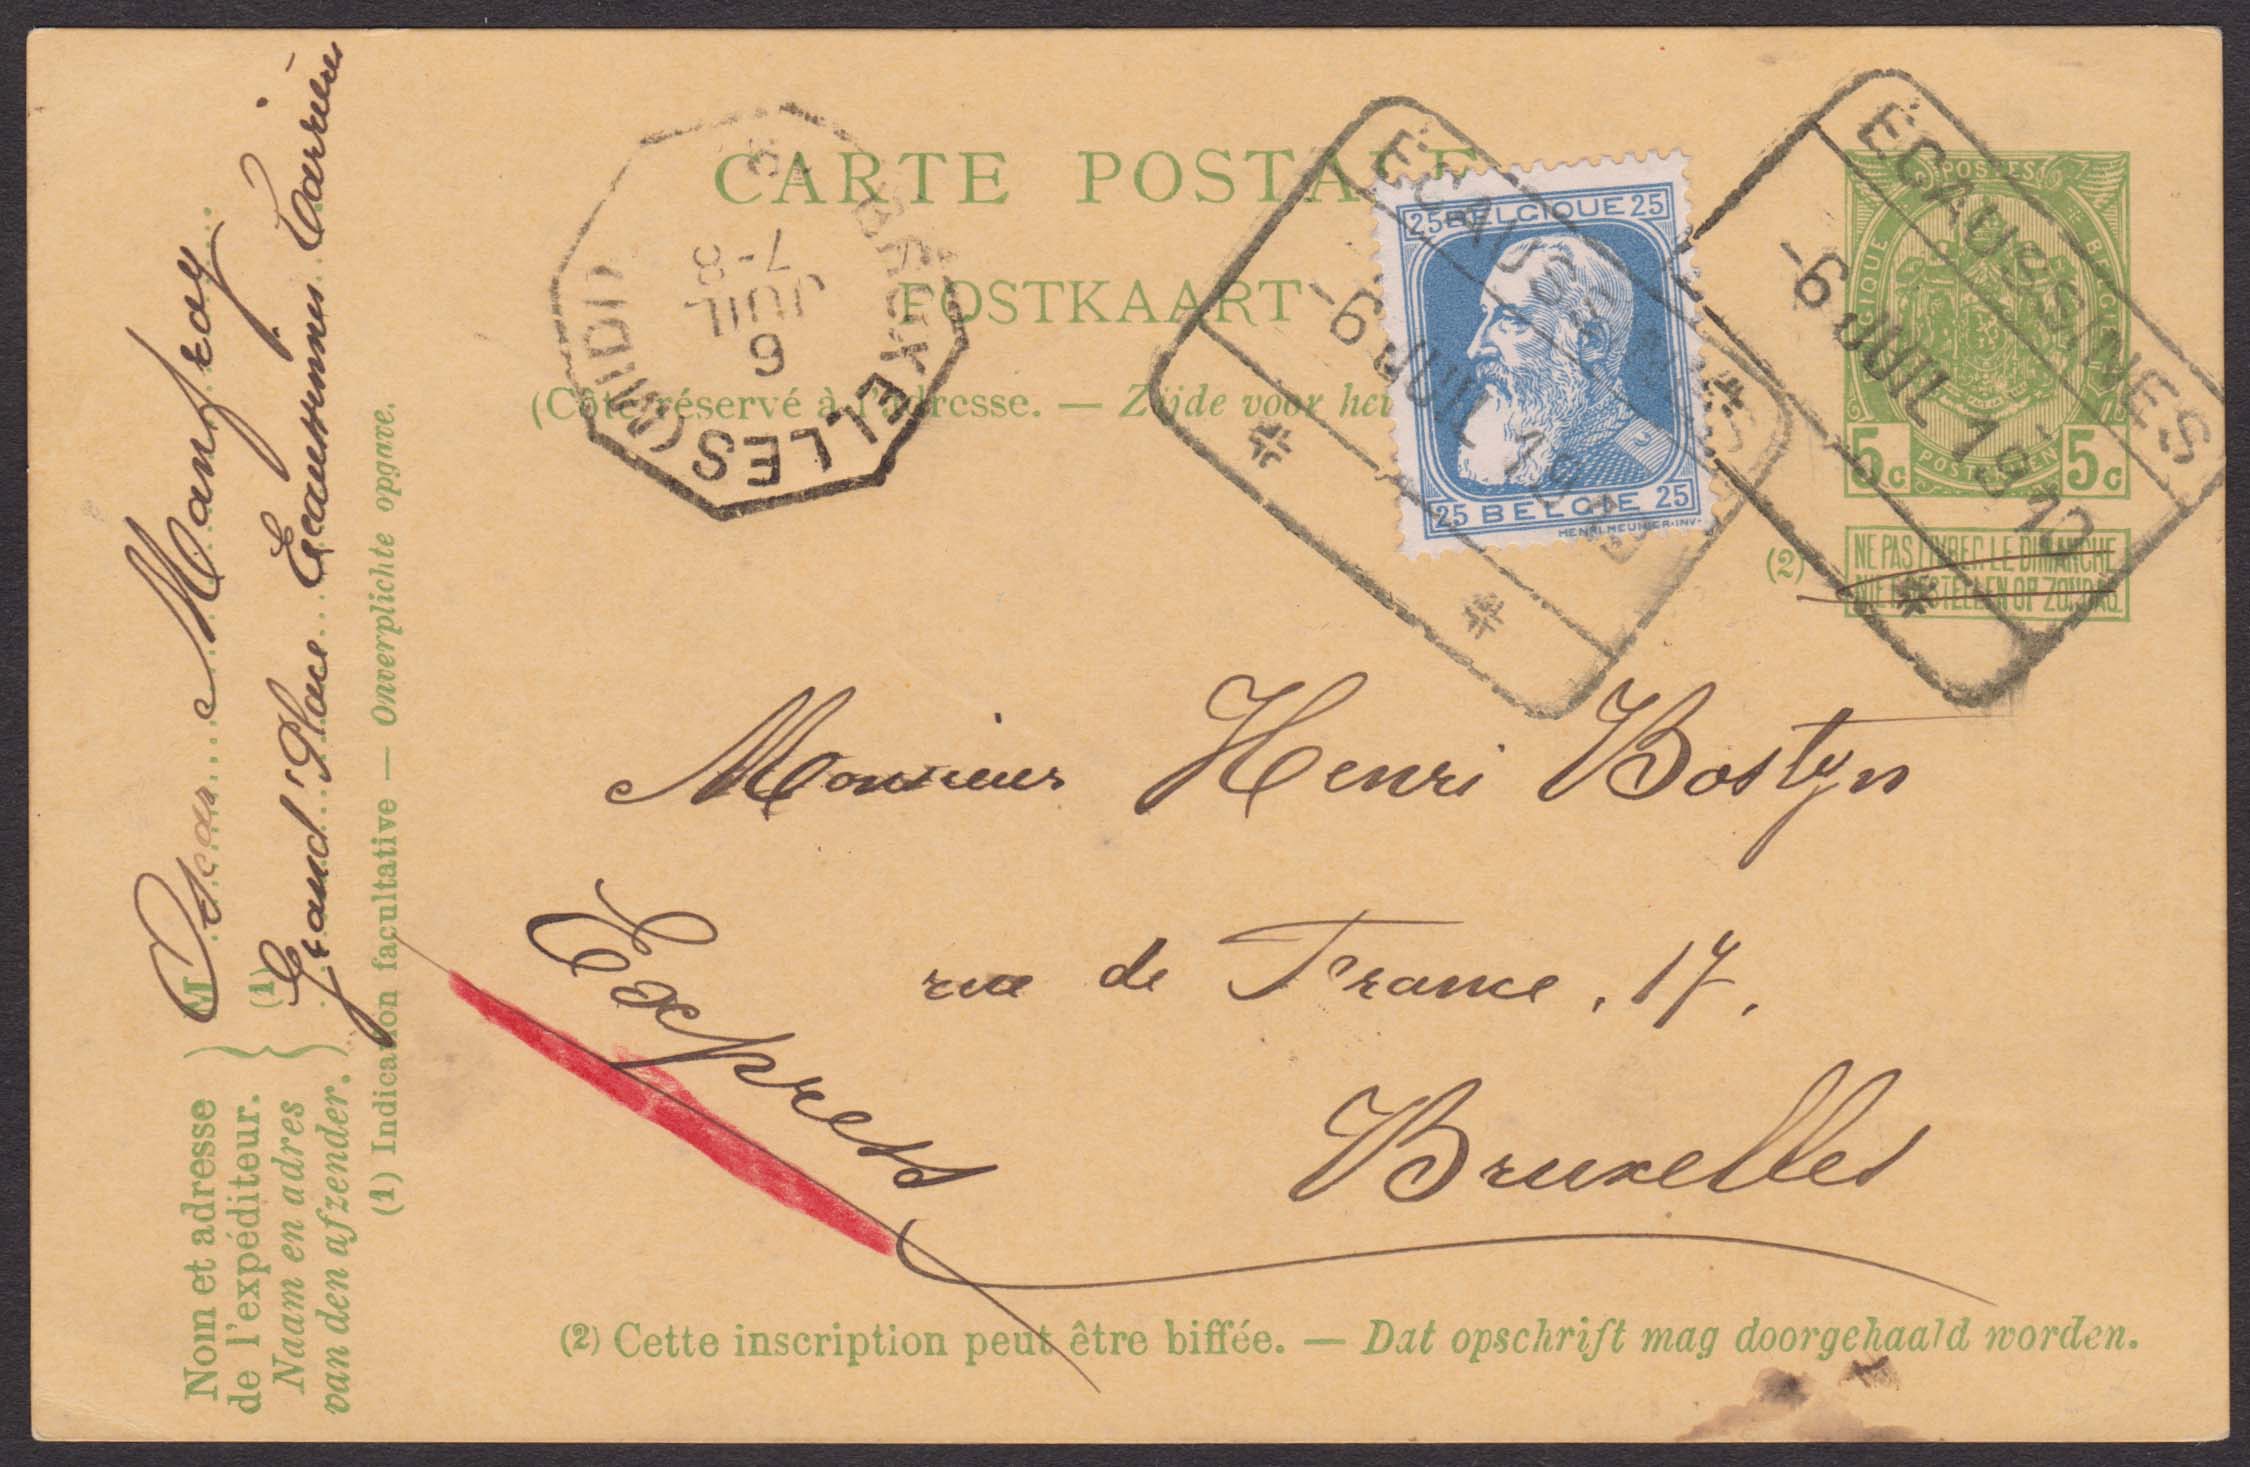 CARTE POSTALE
POSTKAART
(Côté réservé à l'adresse. — Zijde voor het
BRUXELLES (MIDI)
7-8
JUIL
6
ECAUSSINES
-6 JUIL 1910
25 BELGIQUE 25
25 BELGIE 25
HENRI.MEUNIER.INV.
ECAUSSINES
-6 JUIL 1910
POSTES
BELGIQUE
BELGIË
POSTERIJEN
5c 5c
(2)
NE PAS LIVRER LE DIMANCHE
NIET BESTELLEN OP ZONDAG
Monsieur Henri Bostyn
rue de France, 17,
Bruxelles
Express
Nom et adresse
de l'expéditeur.
Naam en adres
van den afzender.
M Oscar Manfroy
(1) Grand'Place Ecaussinnes Carrières
(1) Indication facultative — Onverplichte opgave.
(2) Cette inscription peut être biffée. — Dat opschrift mag doorgehaald worden.